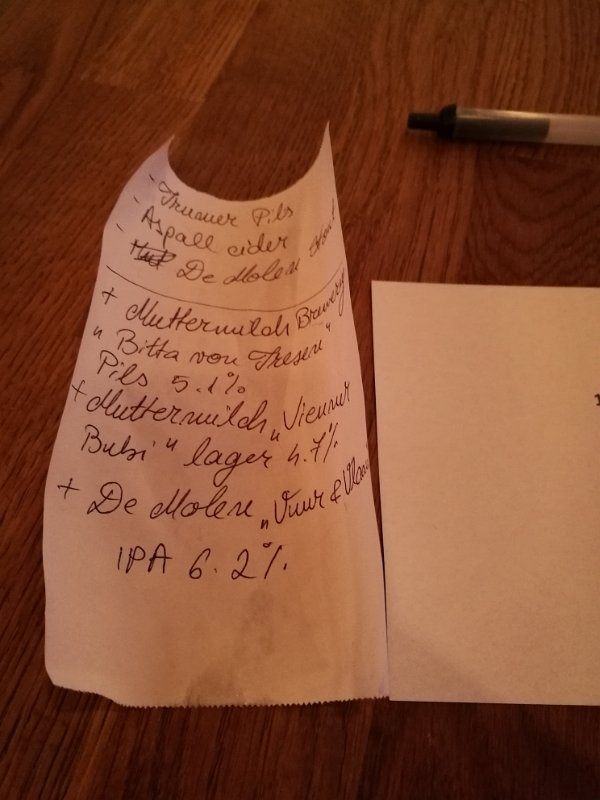 - Trumer Pils
- Aspall cider
- De Molen
+ Muttermilch Brewery
„Bitta von Tresen"
Pils 5.1%
+ Muttermilch „Vienner
Bubi" lager 4.7%
+ De Molen „Vuur & Vlam
IPA 6.2%